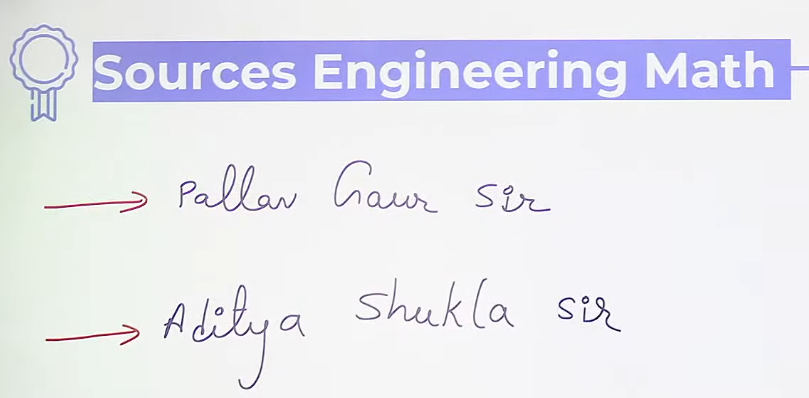 Sources Engineering Math
Pallav Gaur Sir
Aditya Shukla Sir